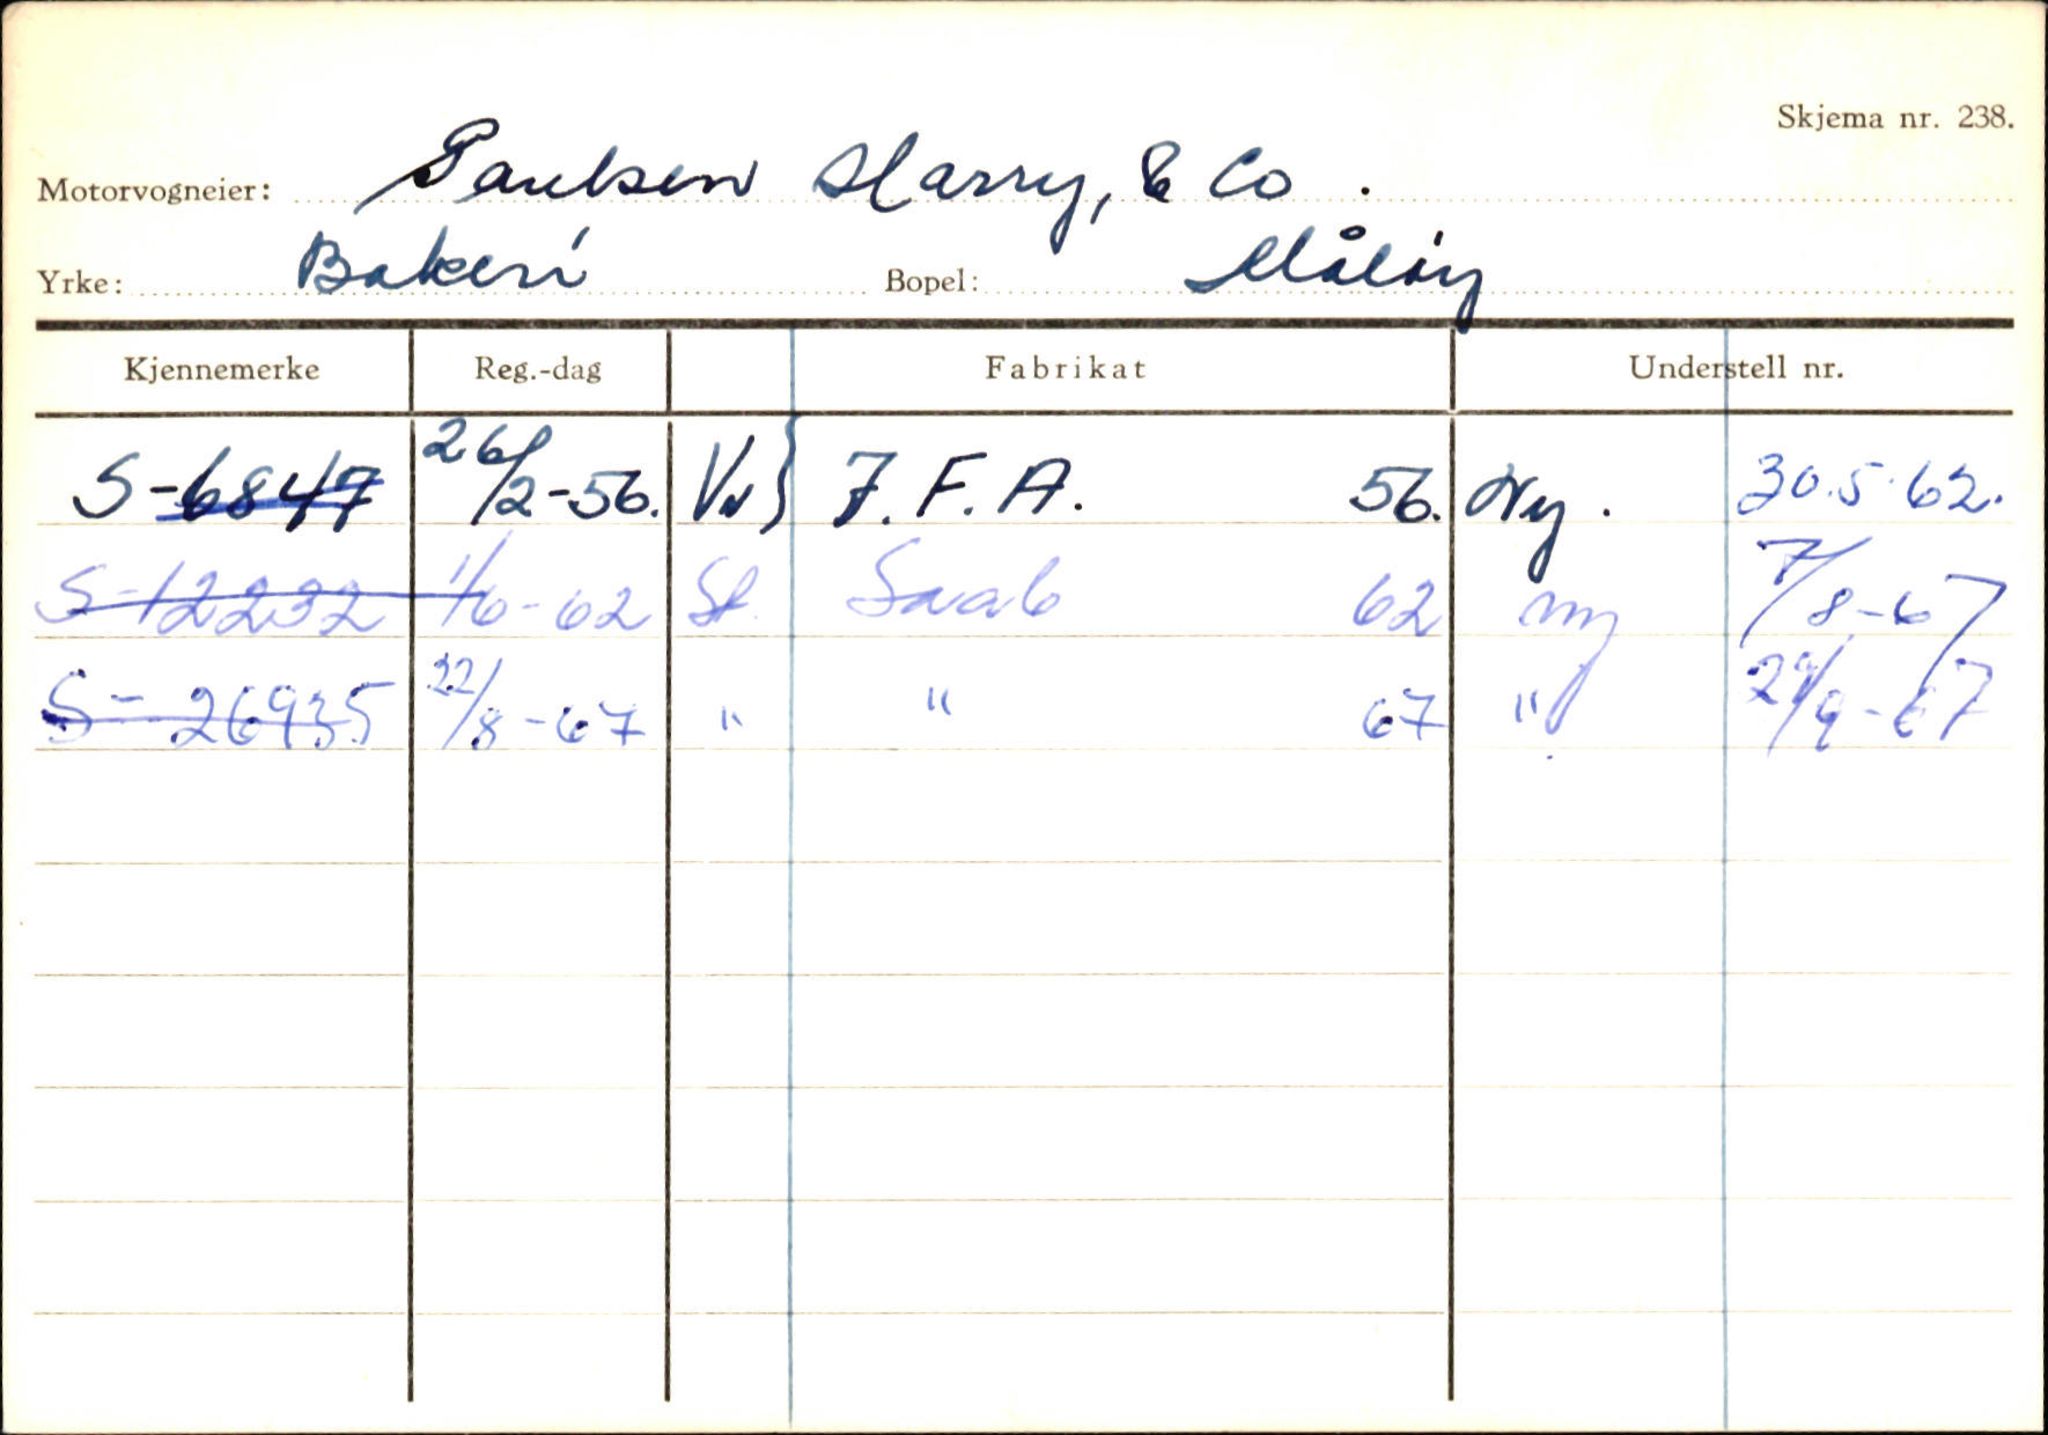 Skjema nr. 238.
Motorvogneier: Paulsen Harry, & Co.
Yrke: Bakeri Bopel: Måløy
Kjennemerke Reg.-dag Fabrikat Understell nr.
S-6847 26/2-56. Vv} I.F.A. 56. Ny. 30.5.62.
S-12232 1/6-62 St. Saab 62 ny 7/8-67
S-26935 22/8-67 " " 67 " /9-67